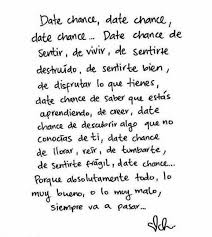 Date chance, date chance,
date chance... Date chance de
sentir, de vivir, de sentirte
destruido, de sentirte bien,
de disfrutar lo que tienes,
date chance de saber que estás
aprendiendo, de creer, date
chance de descubrir algo que no
conocías de ti, date chance
de llorar, reír, de tumbarte,
de sentirte frágil, date chance...
Porque absolutamente todo, lo
muy bueno, o lo muy malo,
siempre va a pasar...